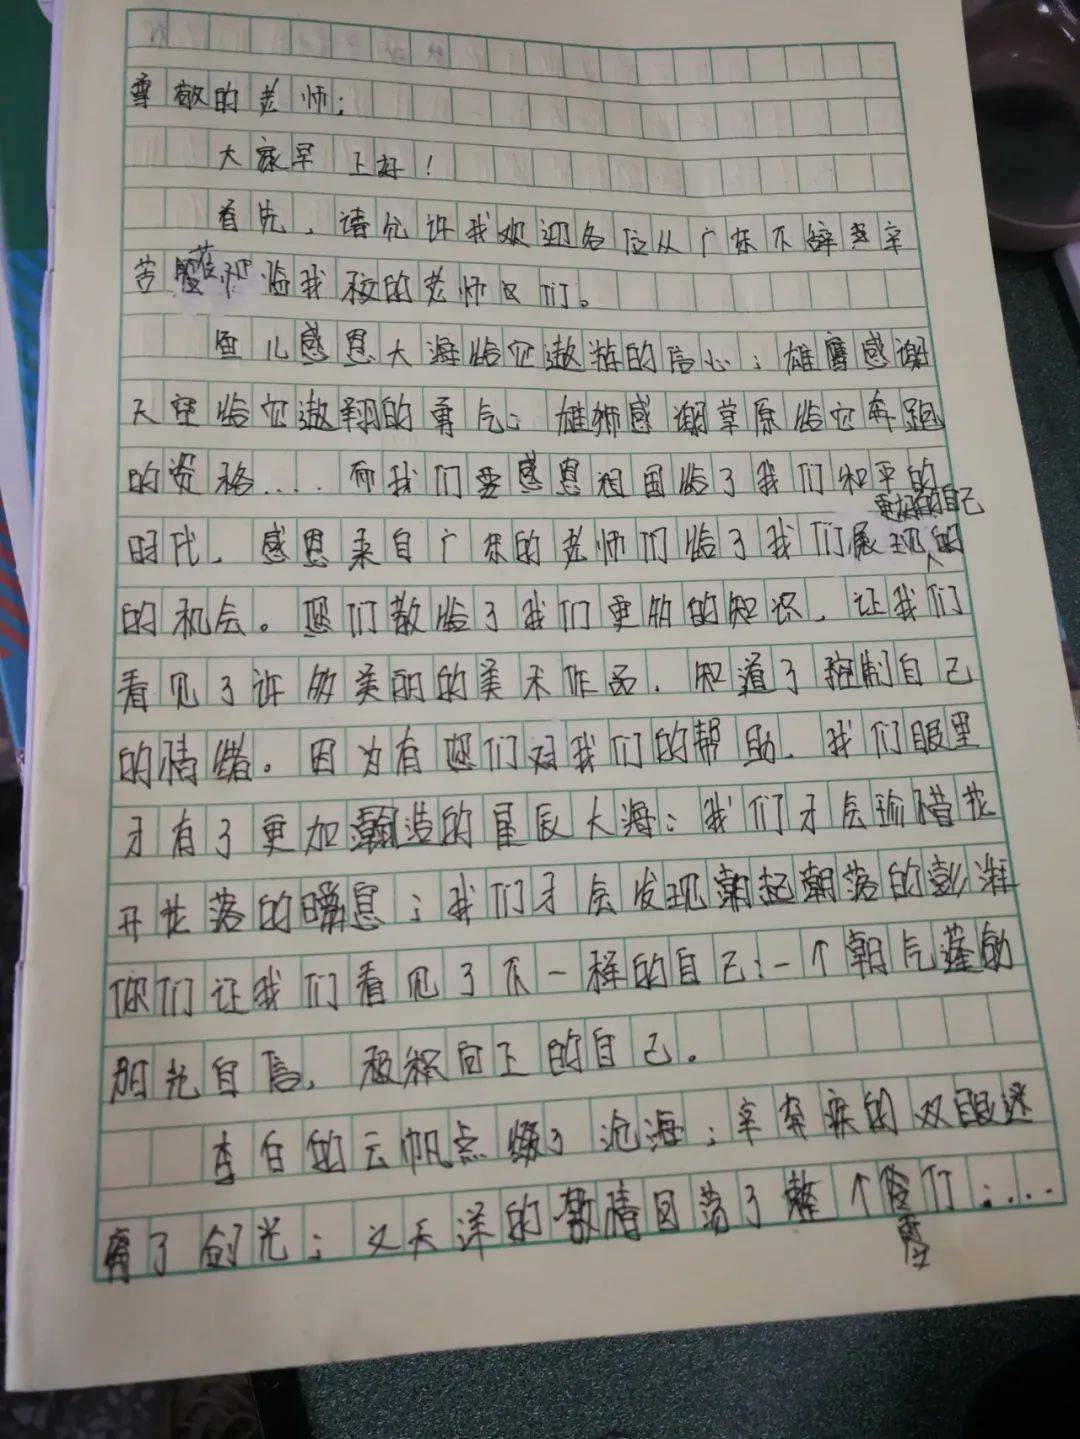 尊敬的老师：
大家早上好！
首先，请允许我欢迎各位从广东不辞辛
苦莅临我校的老师们。
鱼儿感恩大海给它遨游的信心；雄鹰感谢
天空给它遨翔的勇气；雄狮感谢草原给它奔跑
的资格....而我们要感恩祖国给了我们和平的
更好的自己
时代，感恩来自广东的老师们给了我们展现
的机会。您们教给了我们更多的知识，让我们
看见了许多美丽的美术作品，知道了控制自己
的情绪。因为有您们对我们的帮助，我们眼里
才有了更加瀚浩的星辰大海；我们才会珍惜花
开花落的瞬息；我们才会发现潮起潮落的澎湃
你们让我们看见了不一样的自己：一个朝气蓬勃
阳光自信，积极向上的自己。
李白的云帆点缀了沧海；辛弃疾的双眼迷
离了剑光；文天祥的激情回荡了整个零丁；....